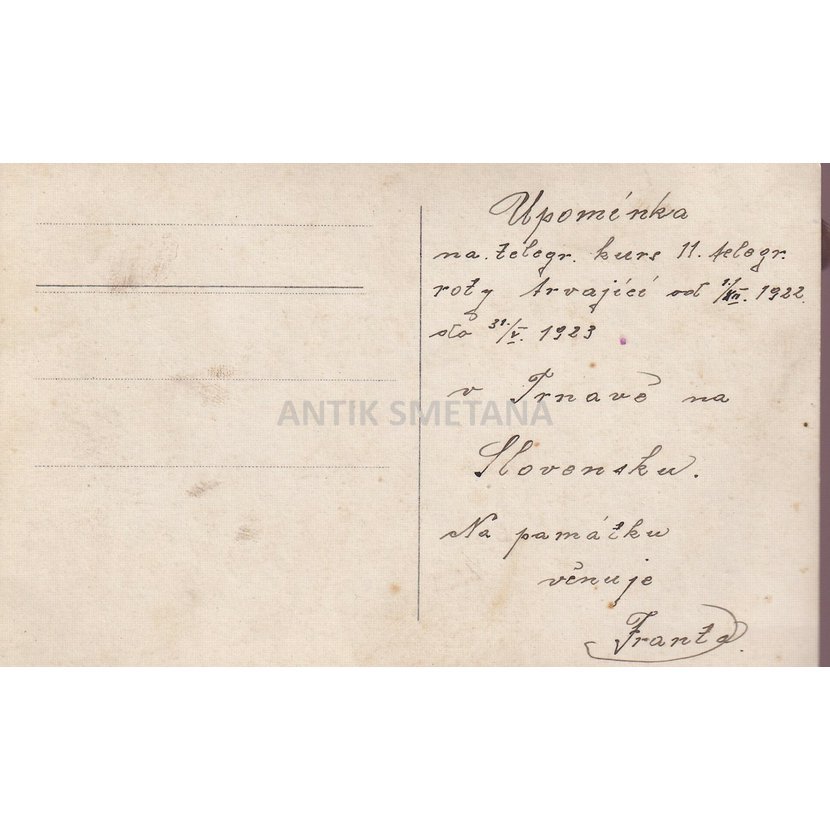 Upomínka
na telegr. kurs 11. telegr.
roty trvající od 1./XII. 1922.
do 31./V. 1923
v Trnavě na
ANTIK SMETANA
Slovensku.
Na památku
věnuje
Franta.